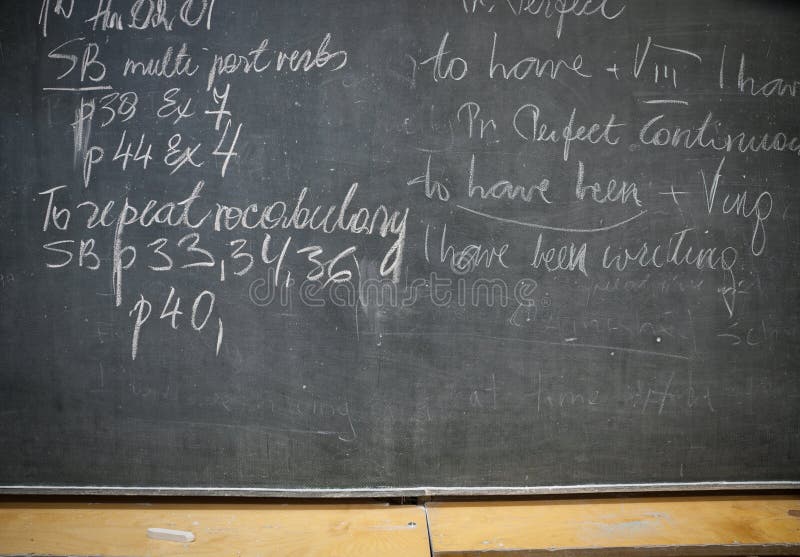 SB multi part verbs
p38 Ex 7
p44 Ex 4
To repeat vocabulary
SB p33,34,36
p40,
Pr. Perfect
to have + VIII I hav
Pr. Perfect Continuous
to have been + Ving
I have been writing
at time
dreamstime